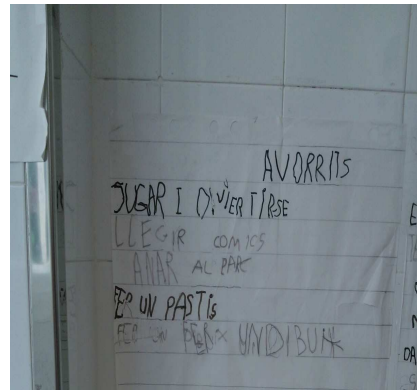 AVORRITS
JUGAR I DIVIERTIRSE
LLEGIR COMICS
ANAR AL PARC
FER UN PASTIS
FER UN UNDIBUIX